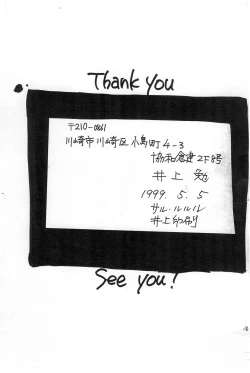 Thank you
〒210-0861
川崎市川崎区小島町4-3
協和倉建2F8号
井上 勉
1999. 5. 5
サル・ルルル
井上印刷
See you!